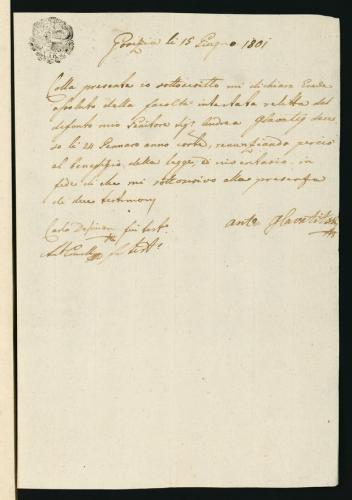 li 15 Giugno 1801
Colla presente io sottoscritto mi dichiaro Erede
assoluto della facoltà intestata relitta dal
defonto mio Genitore Sigr Andrea
so li 24 Gennaro anno corte, renunziando perciò
al benefizio della legge, ed inventario in
fede di che mi sottoscrivo alla presenza
di due testimonj
Carlo fui testo